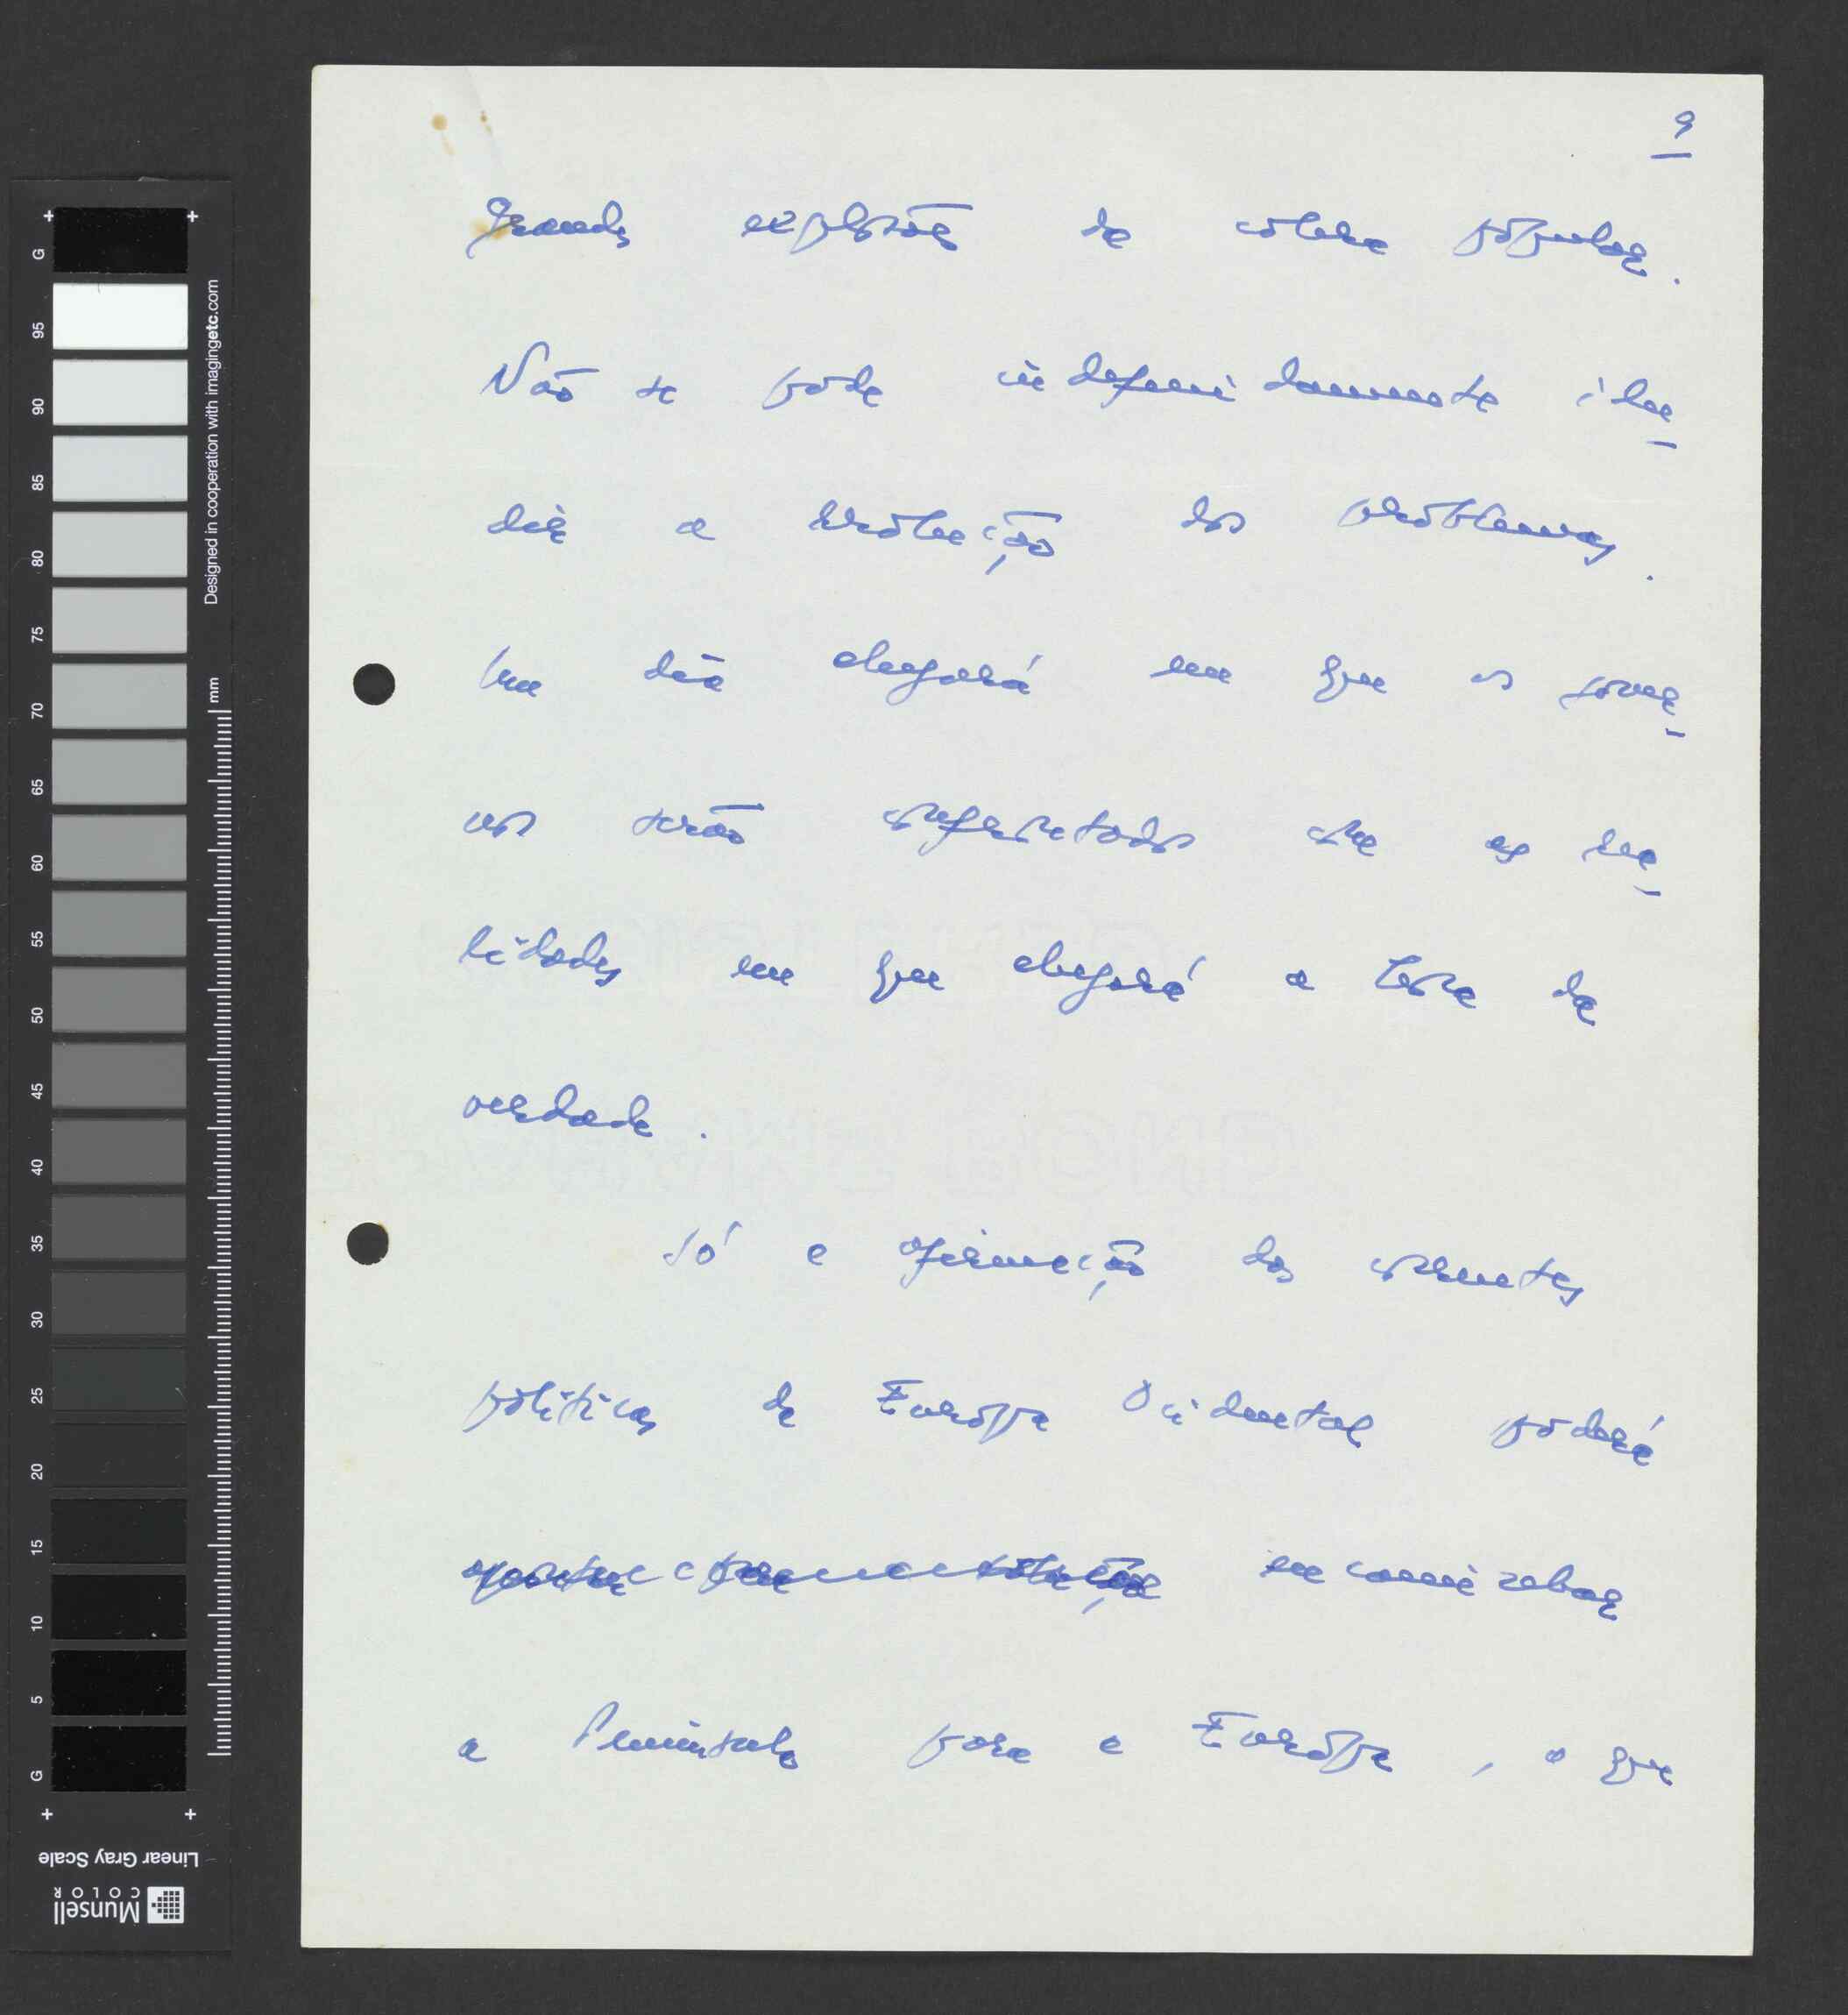 9
Grandes explosões de cólera popular.
Não se pode indefinidamente ilu-
dir a resolução dos problemas.
Um dia chegará em que os gover-
nos serão confrontados com as rea-
lidades em que chegará a hora da
verdade.
Só a afirmação das correntes
políticas da Europa Ocidental poderá
encaminhar
a Península para a Europa, o que
G
95
90
85
80
75
70
65
60
55
50
45
40
35
30
25
20
15
10
5
G
Designed in cooperation with imagingetc.com
mm
Linear Gray Scale
Munsell
COLOR